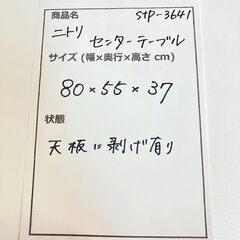 商品名 stp-3641
ニトリ
センターテーブル
サイズ (幅×奥行×高さ cm)
80×55×37
状態
天板に剥げ有り